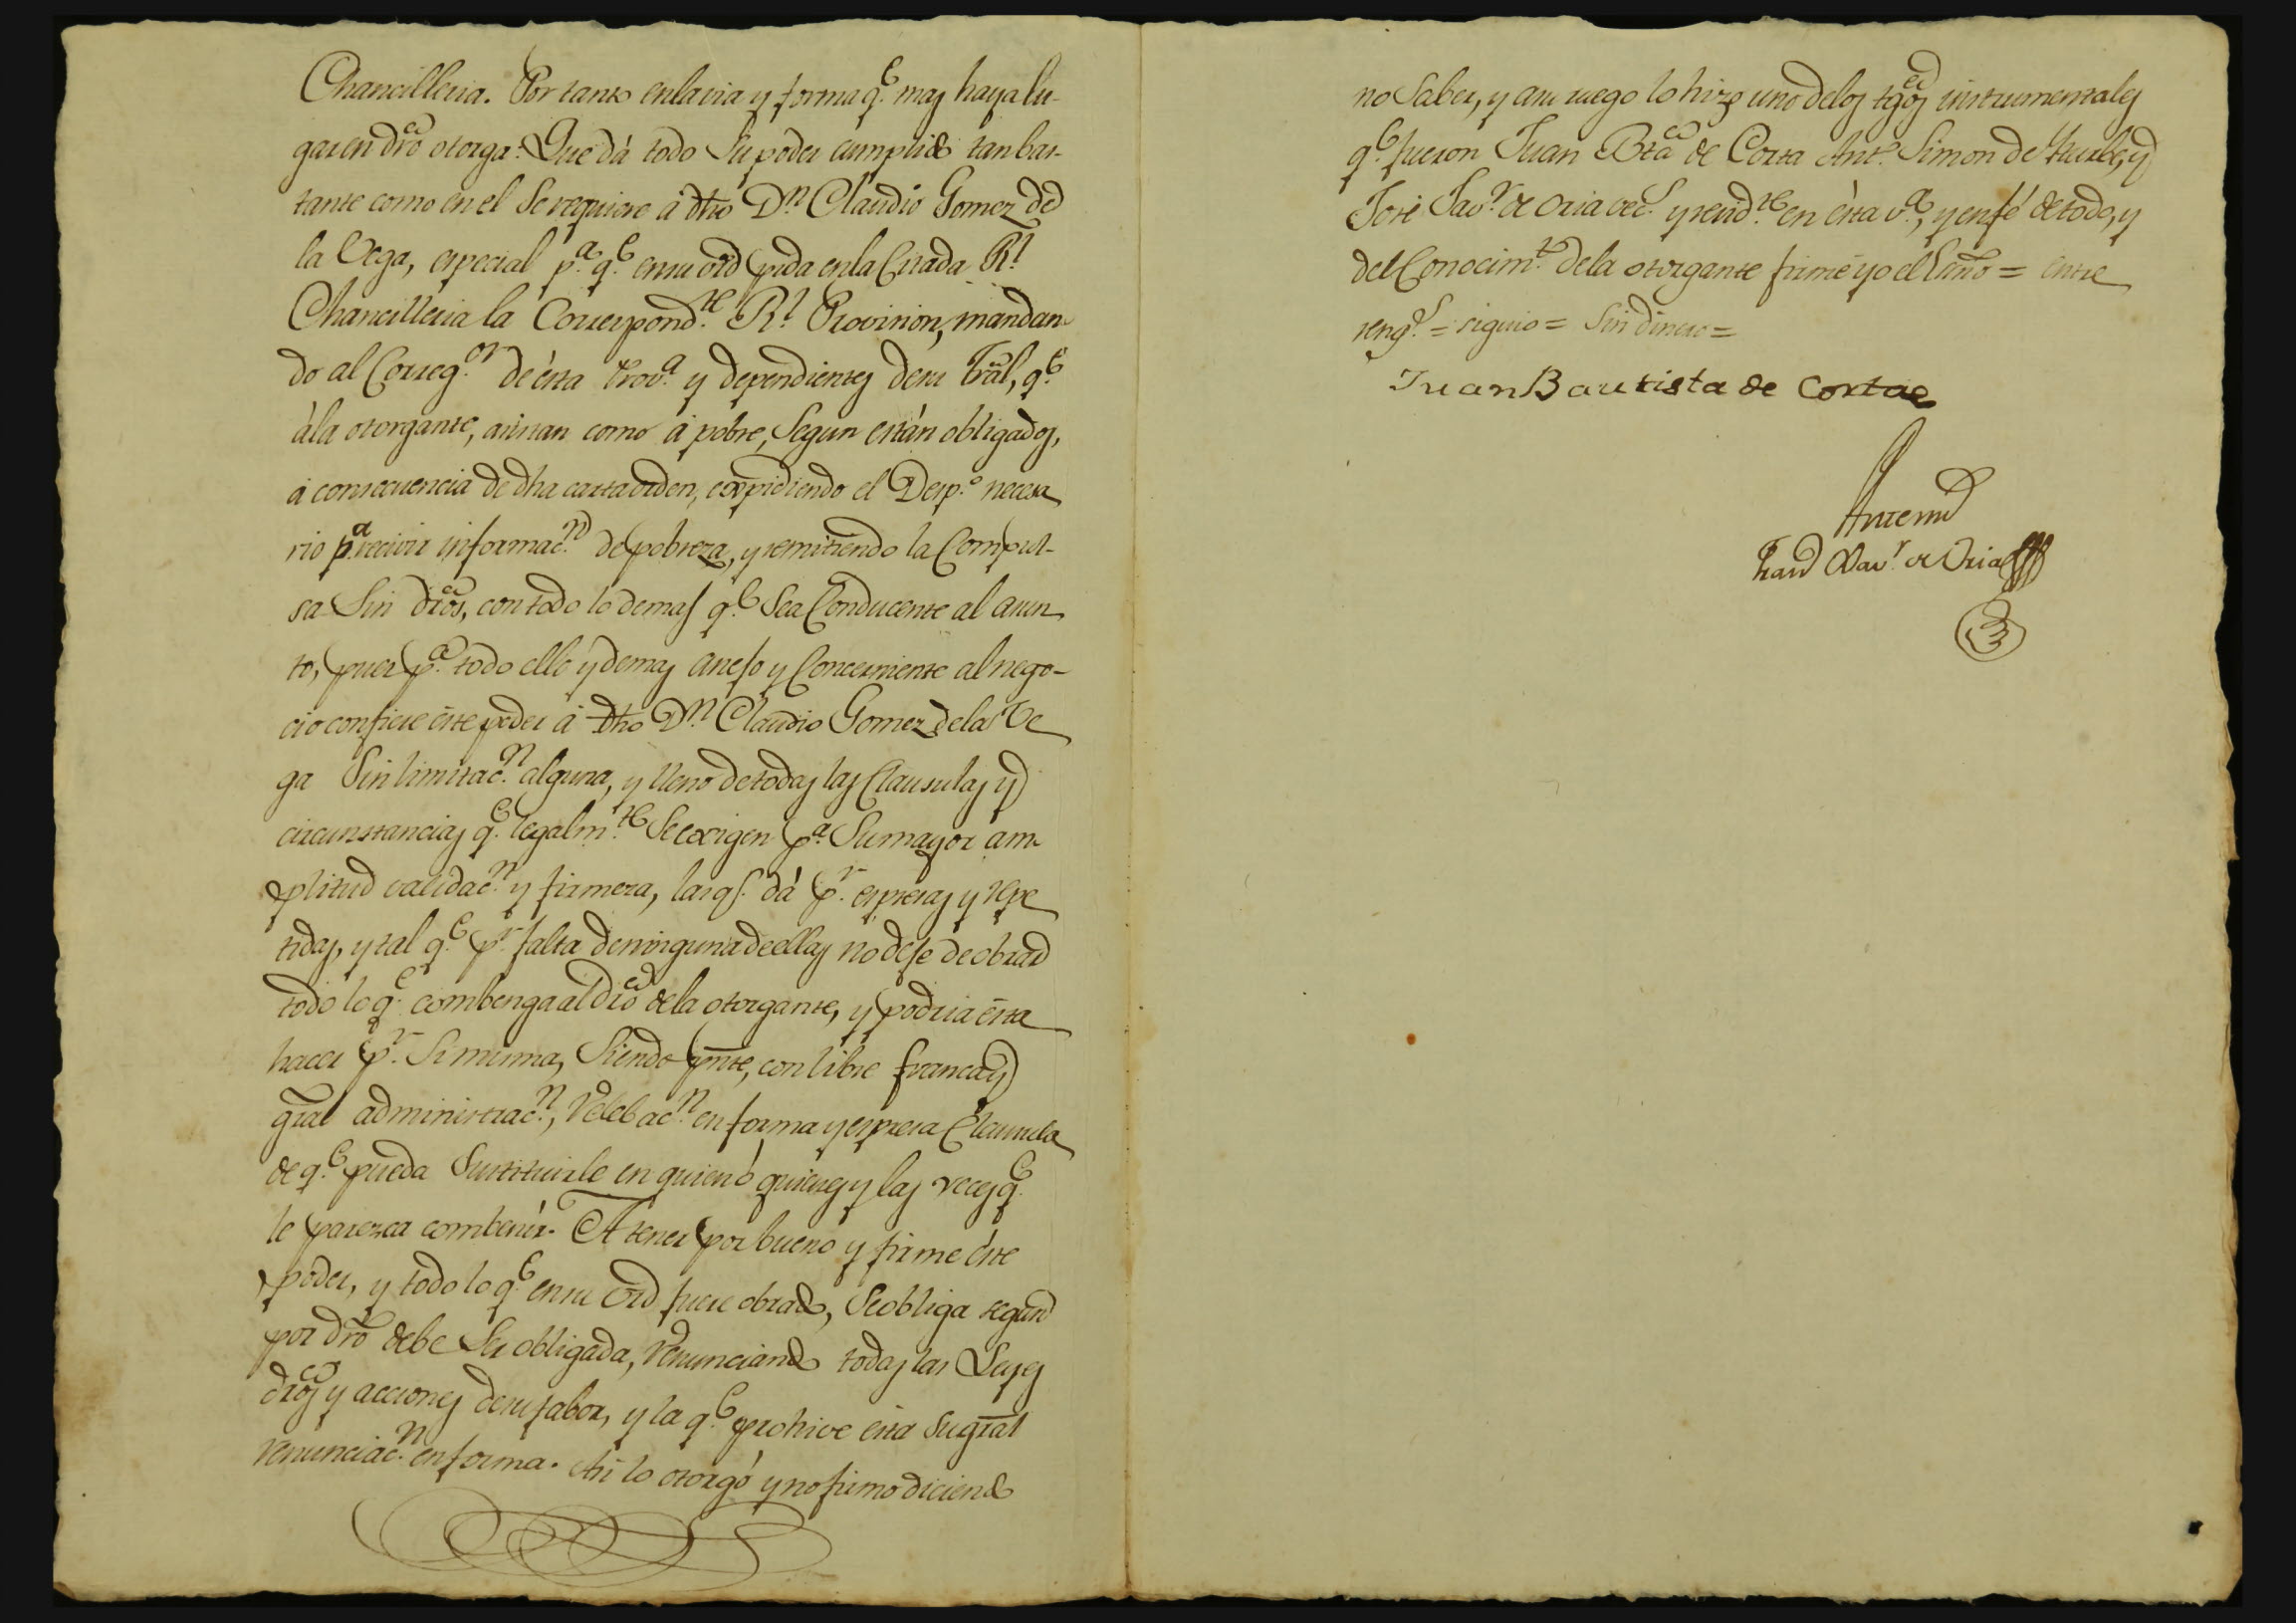 Chancilleria. Por tanto enlavia y forma q.e mas haya lu-
gar en dro otorga: Que dá todo su poder cumplido tan bas-
tante como en el Se requiere á dho D.n Claudio Gomez de
la Vega, especial p.a q.e en su orn pida en la Citada R.l
Chancilleria la Correspond.te R.l Provision, mandan-
do al Correg.or de ésta Prov.a y dependientes de su Tral, q.e
àla otorgante, asistan como á pobre, Segun están obligados,
á consecuencia de dha carta orden, expidiendo el Desp.o necesa
rio p.a recivir informac.n de pobreza, y remitiendo la Compul-
sa Sin dros, con todo lo demas q.e Sea Conducente al asun
to, pues p.a todo ello y demas anejo y Concerniente al nego-
cio confiere éste poder á dho D.n Claudio Gomez dela Ve
ga Sin limitac.n alguna, y lleno de todas las Clausulas y
circunstancias q.e legalm.te Se exigen p.a Su mayor am
plitud validac.n y firmeza, las q.s dá p.r espresas y repe
tidas, y tal q.e p.r falta de ninguna de ellas no deje de obrar
todo lo q.e combenga al dro de la otorgante, y podria ésta
hacer p.r Si misma, Siendo pnte, con libre franca y
gral administrac.n, relebac.n en forma y espresa Clausula
de q.e pueda Sustituirle en quien ó quienes y las veces q.e
le parezca combenir. A tener por bueno y firme éste
poder, y todo lo q.e en su vrd fuere obrado, Se obliga segun
por dro debe Ser obligada, renunciando todas las Leyes
dros y acciones de su fabor, y la q.e prohive ésta Su gral
renunciac.n en forma. Asi lo otorgó y no firmo diciendo
no Saber, y a su ruego lo hizo uno delos tgos instrumentales
q.e fueron Juan Bta de Corta Ant.o Simon de Yturbe, y
José Jav.r de Oria vec.s y resid.tes en ésta v.a, y en fé de todo, y
del Conocim.to dela otorgante firmé yo el Esno = entre
reng.s = siguio = Sin dinero =
Juan Bautista de Corta
Antemi
Fran Xav.r de Oria